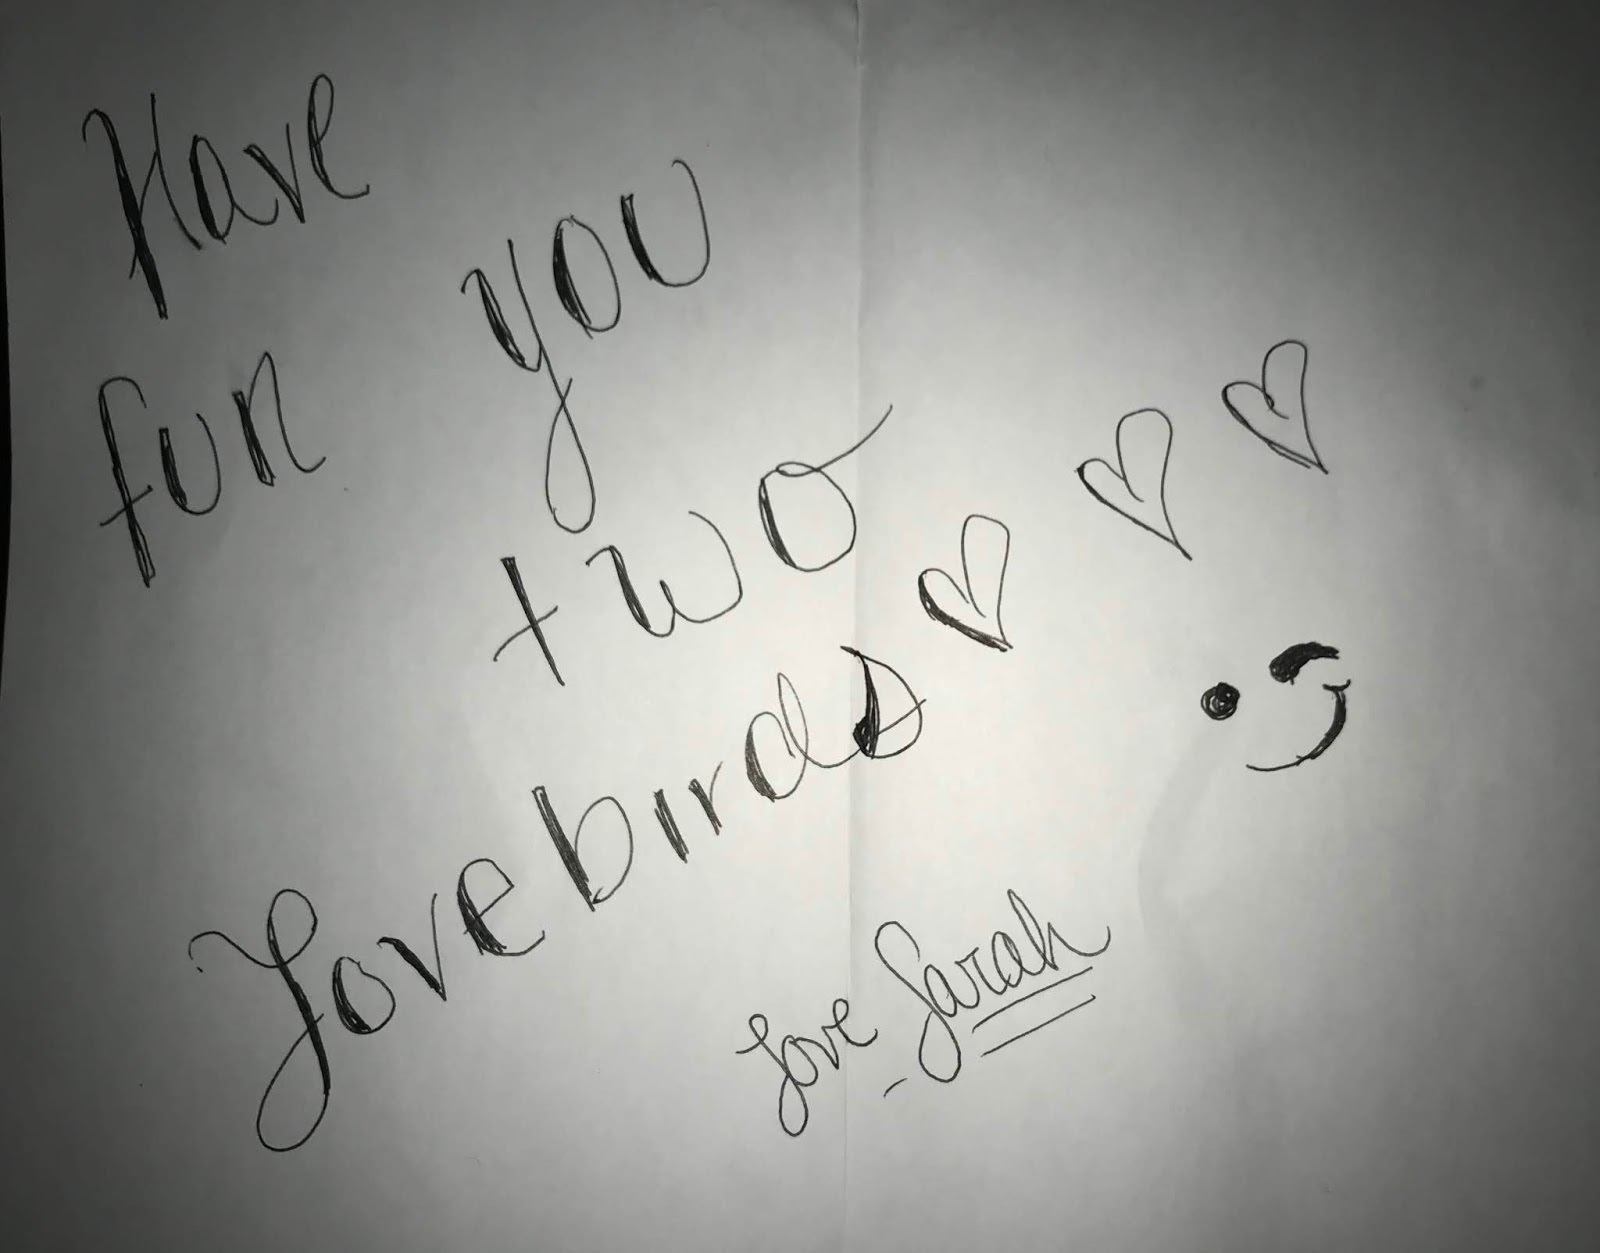 Have
fun you
two
Lovebirds
Love Sarah